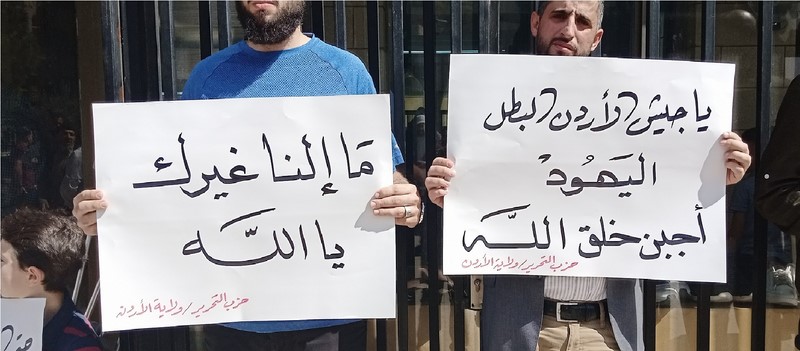 مَا إلنا غيرك
يا اللَّه
حزب التحرير / ولاية الأردن
يا جيش الأردن البطل
اليَهُودْ
أجبن خلق اللَّه
حزب التحرير / ولاية الأردن